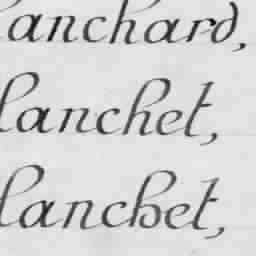 lanchard,
lanchet,
lanchet,